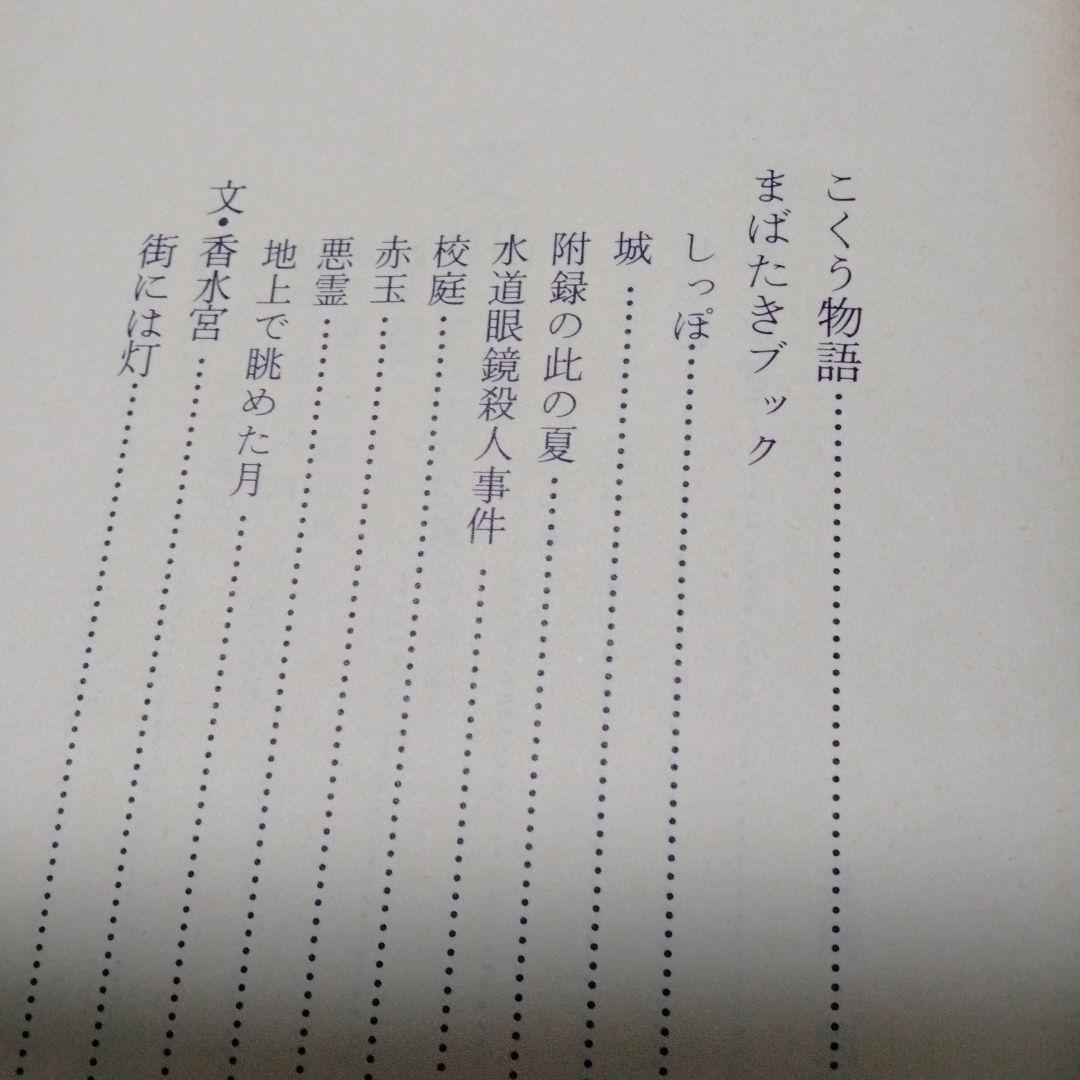 こくう物語
まばたきブック
しっぽ
城
附録の此の夏
水道眼鏡殺人事件
校庭
赤玉
悪霊
地上で眺めた月
文・香水宮
街には灯